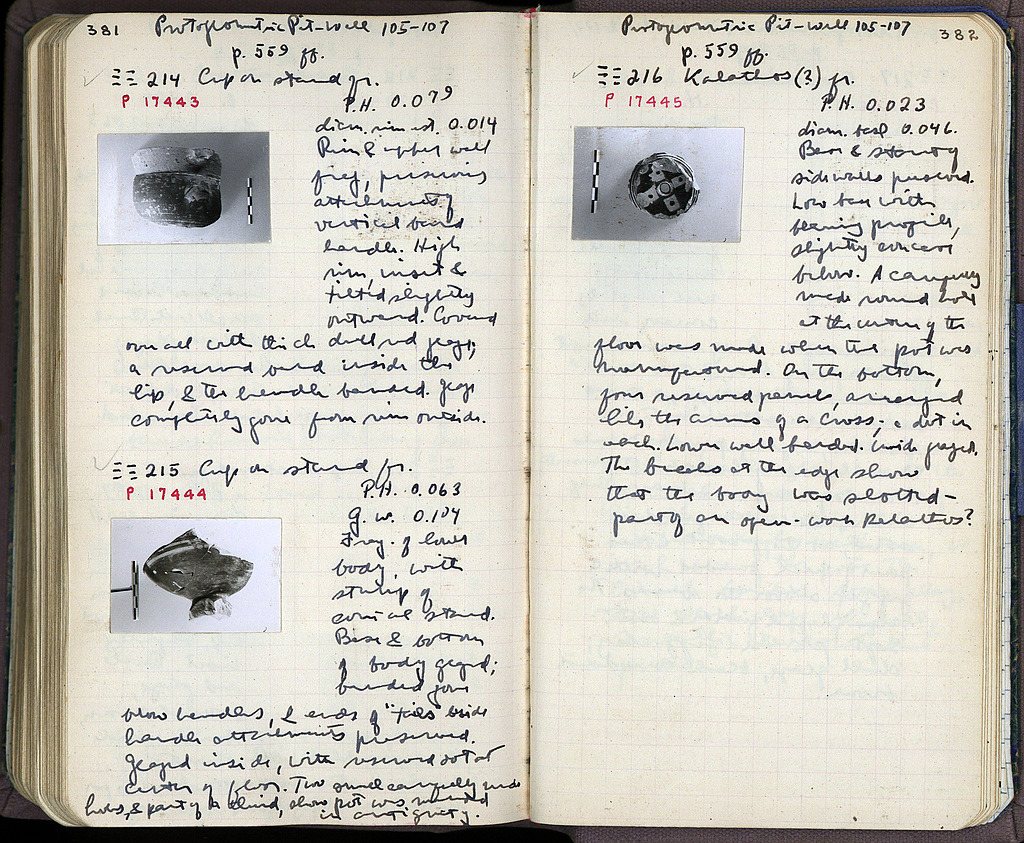 381 Protogeometric Pit-Well 105-107
p. 559 ff.
ΞΞ 214 Cup on stand fr.
P 17443
P.H. 0.079
diam. rim est. 0.014
Rim & upper wall
frag, preserving
attachment of
vertical band
handle. High
rim, inset &
tilted slightly
outward. Covered
over all with thick dull red glaze;
a reserved band inside the
lip, & the handle banded. Glaze
completely gone from rim outside.
ΞΞ 215 Cup on stand fr.
P 17444
P.H. 0.063
G.W. 0.104
Frag. of lower
body, with
stump of
conical stand.
Base & bottom
of body glazed;
banded zone
below handles, & ends of "tails" beside
handle attachments preserved.
Glazed inside, with reserved dot at
center of floor. Two small carefully made
holes, & part of a third, show pot was mended
in antiquity.
Protogeometric Pit-Well 105-107 382
p. 559 ff.
ΞΞ 216 Kalathos (?) fr.
P 17445
P.H. 0.023
diam. base 0.046.
Base & start of
side walls preserved.
Low base with
profile,
slightly concave
below. A carefully
made round hole
at the center of the
floor was made when the pot was
manufactured. On the bottom,
four reserved panels, arranged
like the arms of a cross; a dot in
each. Lower wall banded. Inside glazed.
The breaks at the edge show
that the body was slotted -
part of an open-work Kalathos?